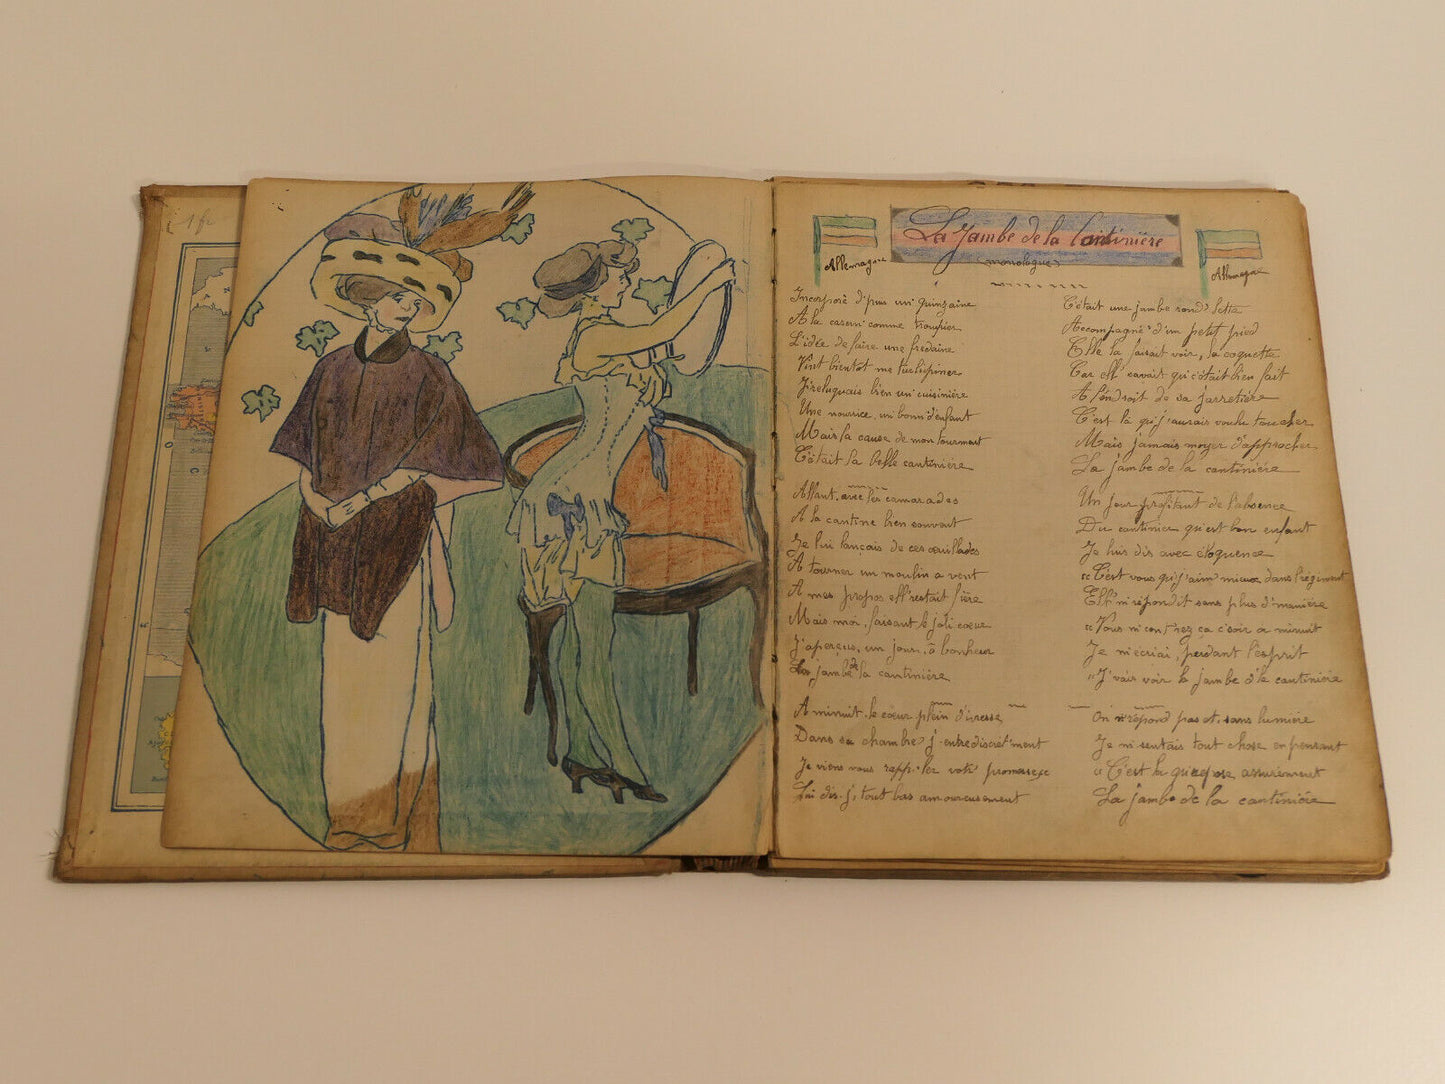 1 fr
La Jambe de la Cantinière
(monologue)
Allemagne
Allemagne
Incorporé d'puis un' quinzaine
A la casern' comme troupier
L'idée de faire une fredaine
Vint bientôt me turlupiner
J'reluquais bien un' cuisinière
Une nourrice, un' bonn' d'enfant
Mais la cause de mon tourment
C'était la belle cantinière
Allant avec les camarades
A la cantine bien souvent
Je lui lançais de ces œuillades
A tourner un moulin a vent
A mes propos ell' restait fière
Mais moi, faisant le joli cœur
J'aperçus, un jour, ô bonheur
La jambe de la cantinière
A minuit le cœur plein d'ivresse
Dans sa chambre j'entre discrèt'ment
Je viens vous rapp'ler votr' promesse
Lui dis-j', tout bas amoureusement
C'était une jambe rond'lette
Accompagné' d'un petit pied
Elle la faisait voir, la coquette
Car ell' savait qu'c'était bien fait
A l'endroit de sa jarretière
C'est là qu'j'aurais voulu toucher
Mais jamais moyen d'approcher
La jambe de la cantinière
Un jour profitant de l'absence
Du cantinier qu'est bon enfant
Je lui dis avec éloquence
" C'est vous qu'j'aim' mieux dans l'régiment
Ell' m'répondit sans plus d'manière
" Vous m'contrez ça c'soir a minuit
Je m'écriai, perdant l'esprit
" J'vais voir la jambe d'la cantinière
On m'répond pas et, sans lumière
Je m'sentais tout chose en pensant
" C'est la qu'repose assurément
La jambe de la cantinière